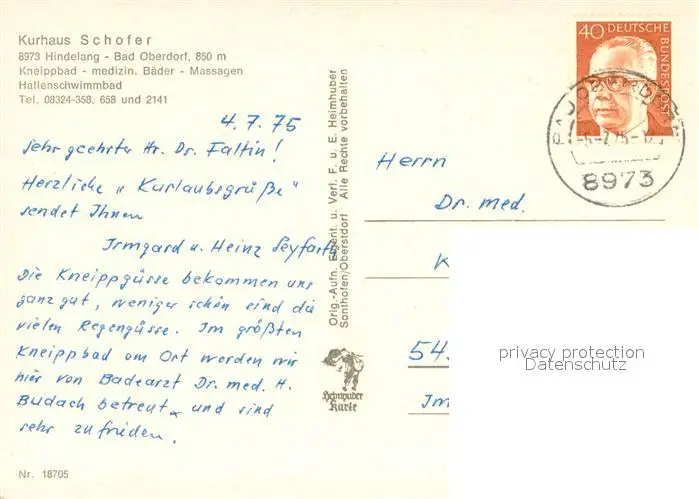 Kurhaus Schofer
8973 Hindelang - Bad Oberdorf, 850 m
Kneippbad - medizin. Bäder - Massagen
Hallenschwimmbad
Tel. 08324-358, 658 und 2141
4.7.75
Sehr geehrter Hr. Dr. Faltin!
Herzliche "Kurlaubsgrüße"
sendet Ihnen
Irmgard u. Heinz Seyfarth
Die Kneippgüsse bekommen uns
ganz gut, weniger schön sind die
vielen Regengüsse. Im größten
Kneippbad am Ort werden wir
hier von Badearzt Dr. med. H.
Budach betreut und sind
sehr zufrieden.
Nr. 18705
Orig.-Aufn. Eigent. u. Verl. F. u. E. Heimhuber
Sonthofen/Oberstdorf Alle Rechte vorbehalten
Heimhuber
Karte
40 DEUTSCHE
BUNDESPOST
8973
Herrn
Dr. med.
K
54
Im
privacy protection
Datenschutz